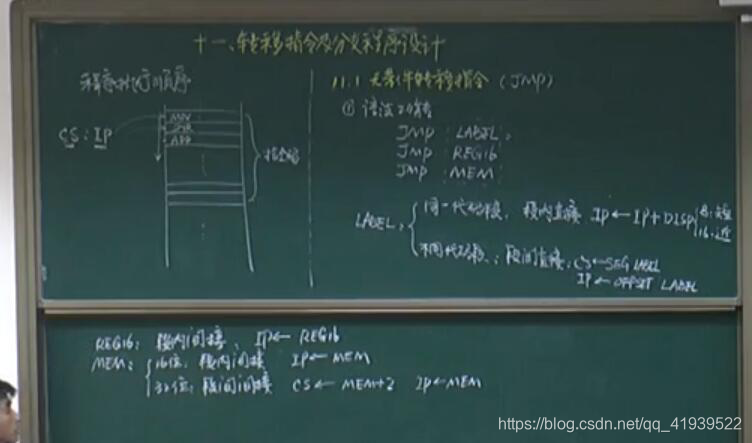 十一、转移指令及分支程序设计
程序执行顺序
CS:IP
MOV
SUB
ADD
指令码
11.1 无条件转移指令 (JMP)
① 语法功能
JMP LABEL;
JMP REG16
JMP MEM
LABEL:
同一代码段, 段内直接 IP←IP+DISP
8:短
16:近
不同代码段: 段间直接: CS←SEG LABEL
IP←OFFSET LABEL
REG16: 段内间接, IP←REG16
MEM: 16位: 段内间接 IP←MEM
32位: 段间间接 CS←MEM+2 IP←MEM
https://blog.csdn.net/qq_41939522